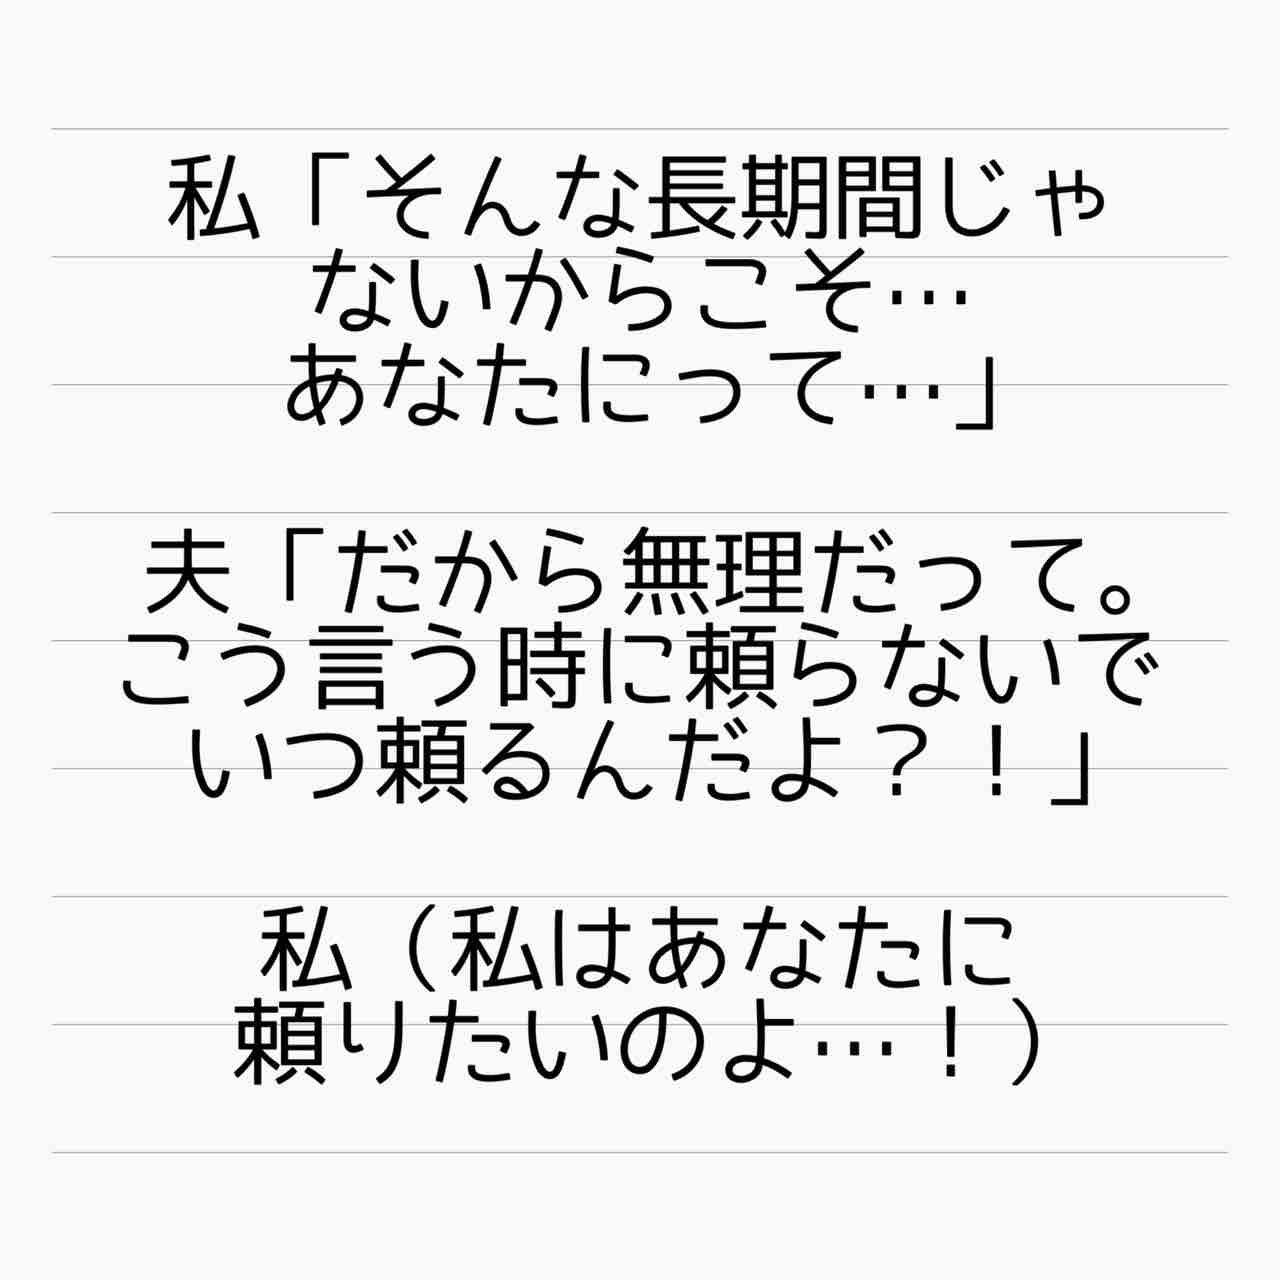 私「そんな長期間じゃ
ないからこそ…
あなたにって…」
夫「だから無理だって。
こう言う時に頼らないで
いつ頼るんだよ？！」
私（私はあなたに
頼りたいのよ…！）